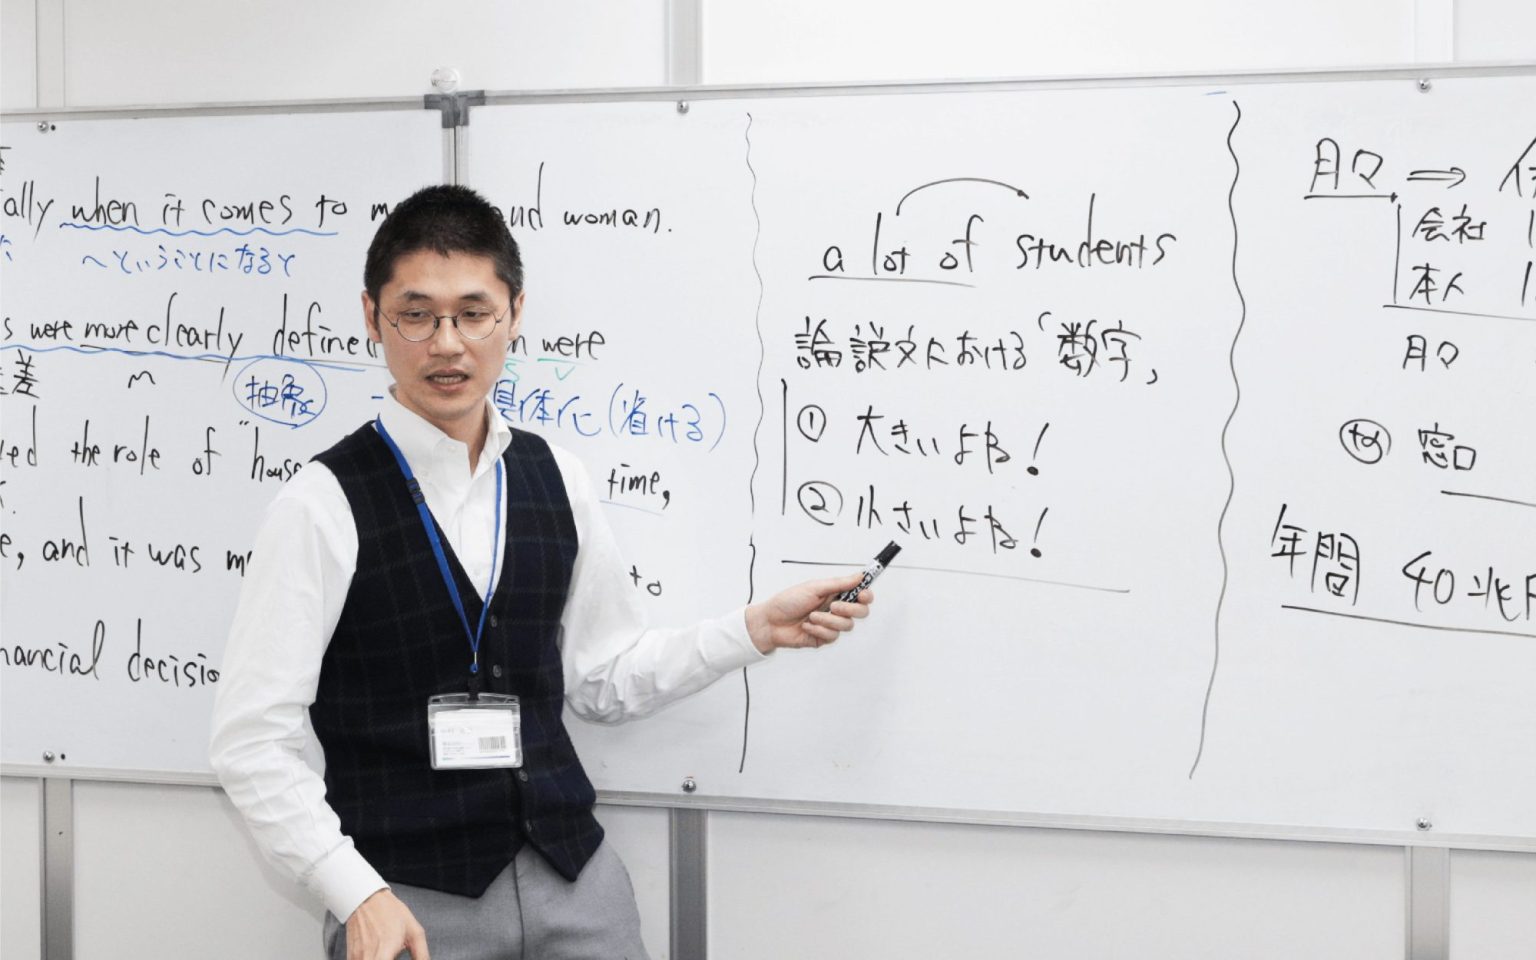 ally when it comes to m nd woman.
〜ということになると
s were more clearly define n were
差
S V
抽象 具体化(省ける)
ed the role of "house time,
e, and it was m to
nancial decisio
a lot of students
論説文における「数字」
① 大きいよね!
② 小さいよね!
月々 ⇒
会社 1
本人 1
月々
窓口
年間 40兆円